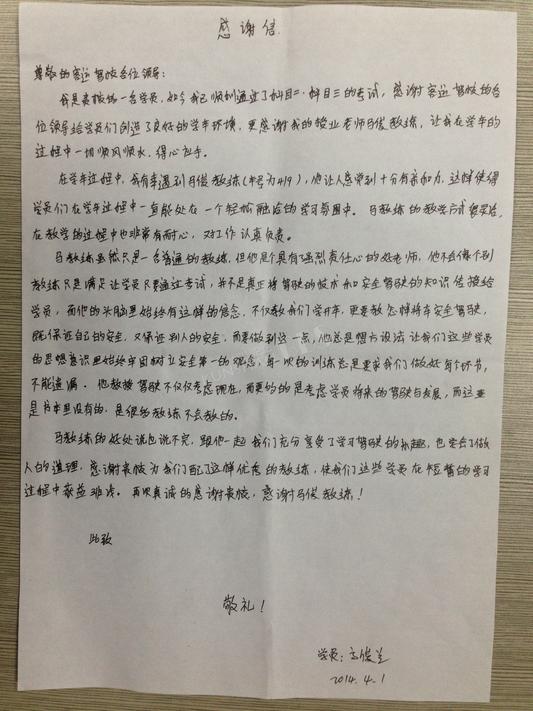 感谢信
尊敬的客运驾校各位领导：
我是贵校的一名学员，如今我已顺利通过了科目二、科目三的考试，感谢客运驾校的各
位领导给学员们创造了良好的学车环境，更感谢我的授业老师马俊教练，让我在学车的
过程中一切顺风顺水，得心应手。
在学车过程中，我有幸遇到马俊教练（车号为419），他让人感觉到十分有亲和力，这样使得
学员们在学车过程中一直能处在一个轻松融洽的学习氛围中。马教练的教学方式很灵活，
在教学的过程中也非常有耐心，对工作认真负责。
马教练虽然只是一名普通的教练，但他是个具有强烈责任心的好老师，他不会像个别
教练只是满足让学员只要通过考试，并不是真正将驾驶的技术和安全驾驶的知识传授给
学员，而他的头脑里始终有这样的信念，不仅教我们学开车，更要教怎样将车安全驾驶，
既保证自己的安全，又保证别人的安全，而要做到这一点，他总是想方设法让我们这些学员
的思想意识里始终牢固树立安全第一的观念，每一次的训练总是要求我们做好每个环节，
不能遗漏。他教授驾驶不仅仅考虑现在，而更多的是考虑学员将来的驾驶与发展，而这要
是书本里没有的，是很多教练不会教的。
马教练的好处说也说不完，跟他一起我们充分享受了学习驾驶的乐趣，也学会了做
人的道理，感谢贵校为我们配了这样优秀的教练，使我们这些学员在短暂的学习
过程中获益非浅。再次真诚的感谢贵校，感谢马俊教练！
此致
敬礼！
学员：
2014.4.1